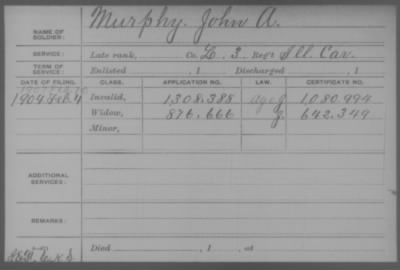 NAME OF SOLDIER: Murphy. John A.
SERVICE: Late rank, Co. L. 3. Reg't Ill. Cav.
TERM OF SERVICE: Enlisted , 1 Discharged , 1
DATE OF FILING. CLASS. APPLICATION NO. LAW. CERTIFICATE NO.
1904 Feb. 4 Invalid, 1,308,388 1,080,994
Widow, 876,666 642,349
Minor,
ADDITIONAL SERVICES:
REMARKS:
Died , 1 , at